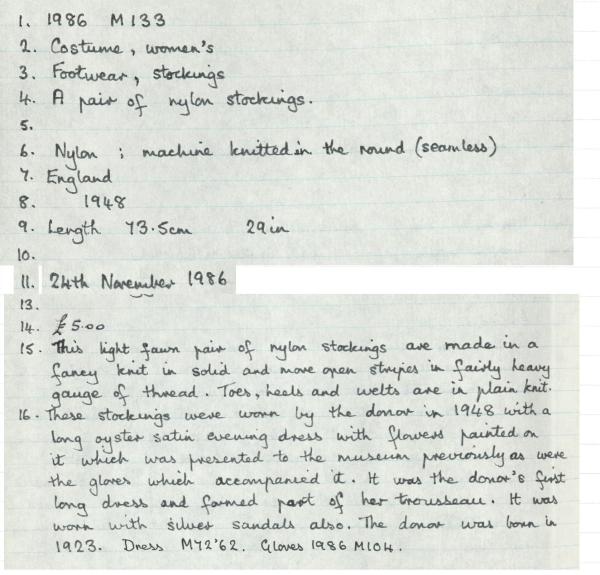 1. 1986 M133
2. Costume, women's
3. Footwear, stockings
4. A pair of nylon stockings.
5.
6. Nylon; machine knitted in the round (seamless)
7. England
8. 1948
9. Length 73.5cm 29in
10.
11. 24th November 1986
13.
14. £5.00
15. This light fawn pair of nylon stockings are made in a
fancy knit in solid and more open stripes in fairly heavy
gauge of thread. Toes, heels and welts are in plain knit.
16. These stockings were worn by the donor in 1948 with a
long oyster satin evening dress with flowers painted on
it which was presented to the museum previously as were
the gloves which accompanied it. It was the donor's first
long dress and formed part of her trousseau. It was
worn with silver sandals also. The donor was born in
1923. Dress M72'62. Gloves 1986 M104.